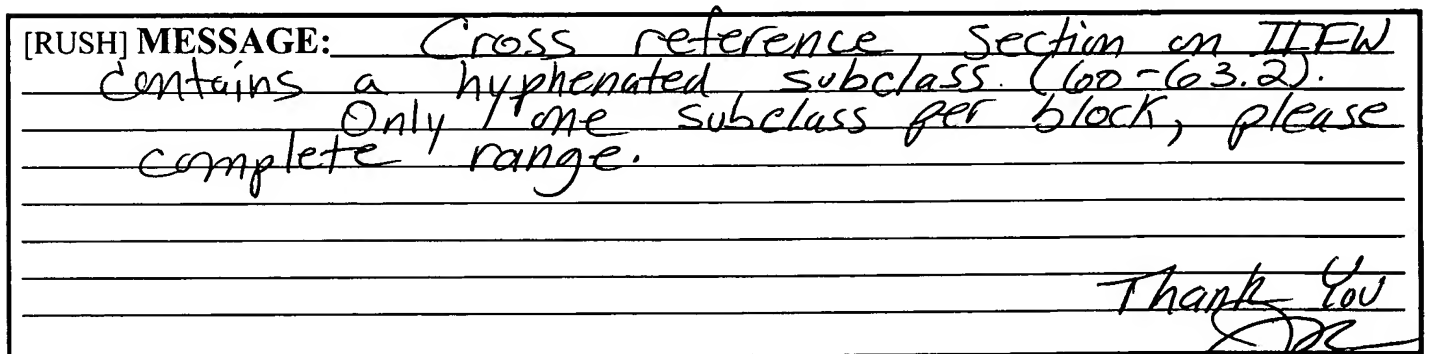 [RUSH] MESSAGE: Cross reference section on IIFW
contains a hyphenated subclass. (60-63.2).
Only one subclass per block, please
complete range.
Thank You